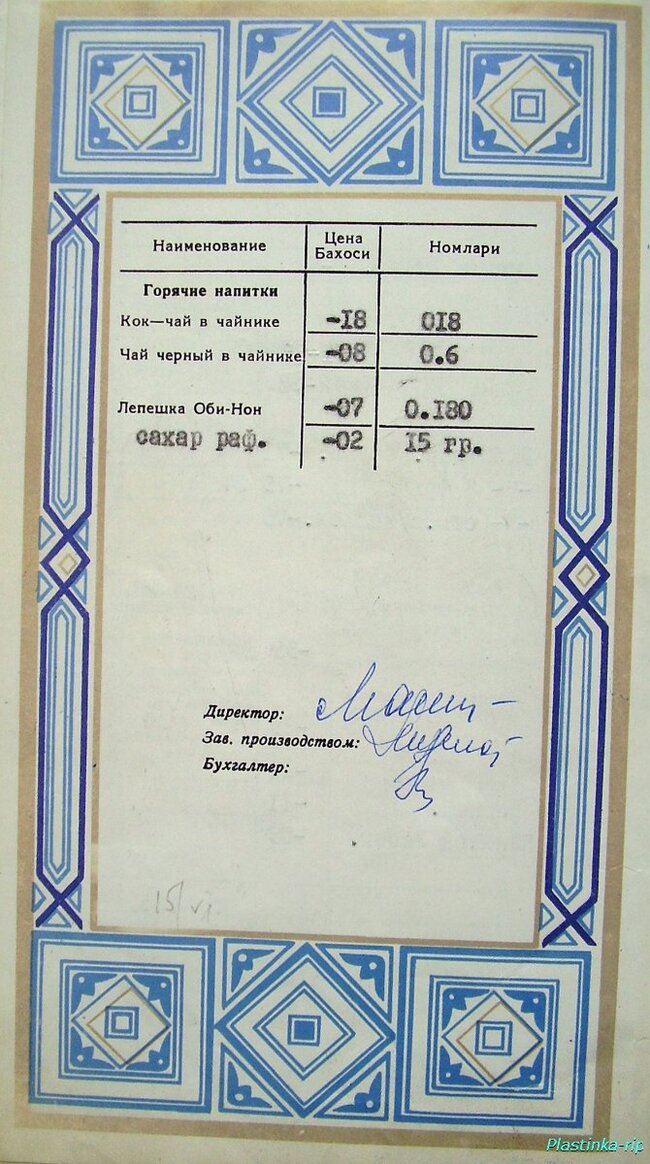 Наименование Цена Бахоси Номлари
Горячие напитки
Кок—чай в чайнике -18 018
Чай черный в чайнике -08 0.6
Лепешка Оби-Нон -07 0.180
сахар раф. -02 15 гр.
Директор:
Зав. производством:
Бухгалтер:
15/VI
Plastinka-rip